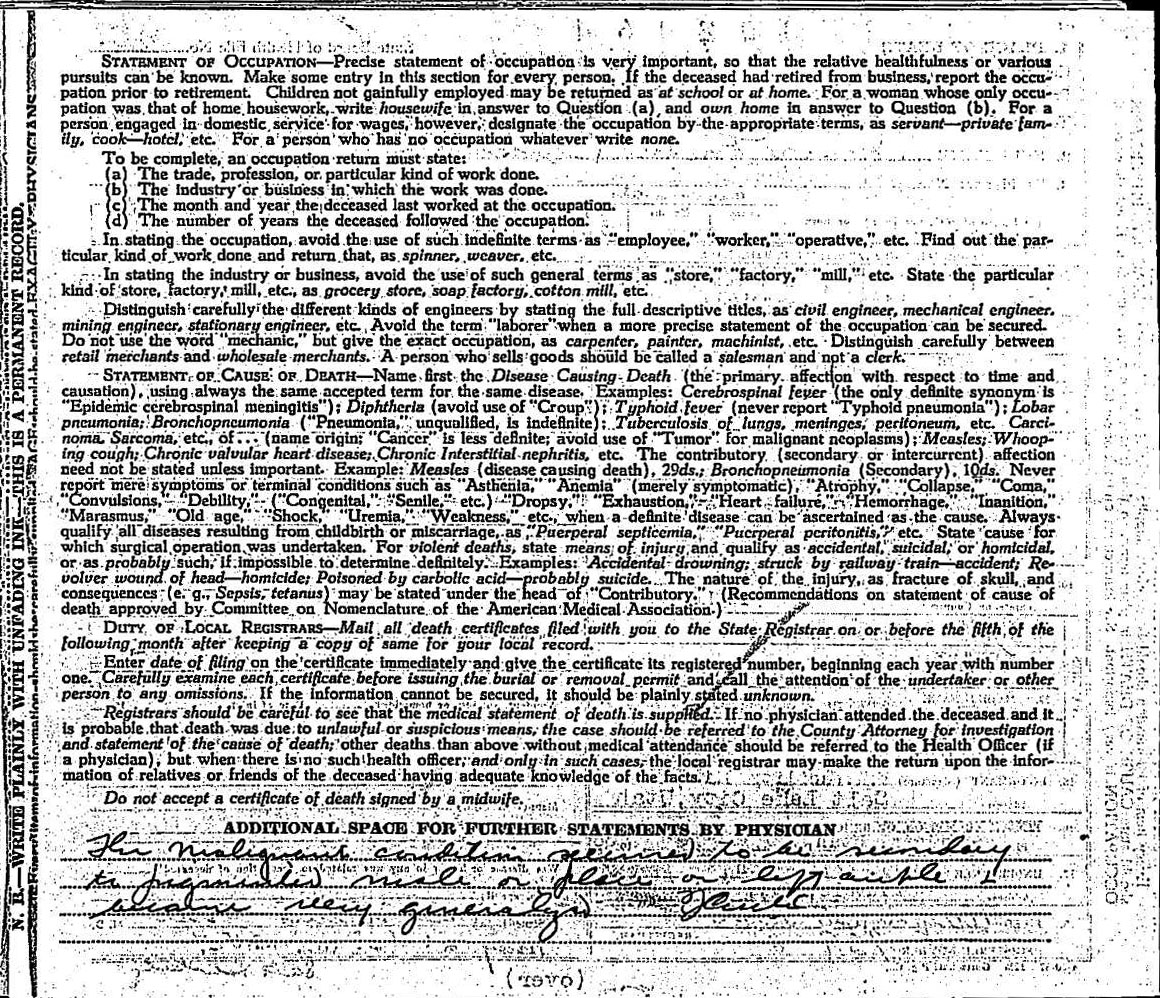 STATEMENT OF OCCUPATION—Precise statement of occupation is very important, so that the relative healthfulness or various
pursuits can be known. Make some entry in this section for every person. If the deceased had retired from business, report the occu-
pation prior to retirement. Children not gainfully employed may be returned as at school or at home. For a woman whose only occu-
pation was that of home housework, write housewife in answer to Question (a) and own home in answer to Question (b). For a
person engaged in domestic service for wages, however, designate the occupation by the appropriate terms, as servant—private fam-
ily, cook—hotel, etc. For a person who has no occupation whatever write none.
To be complete, an occupation return must state:
(a) The trade, profession, or particular kind of work done.
(b) The industry or business in which the work was done.
(c) The month and year the deceased last worked at the occupation.
(d) The number of years the deceased followed the occupation.
In stating the occupation, avoid the use of such indefinite terms as "employee," "worker," "operative," etc. Find out the par-
ticular kind of work done and return that, as spinner, weaver, etc.
In stating the industry or business, avoid the use of such general terms as "store," "factory," "mill," etc. State the particular
kind of store, factory, mill, etc., as grocery store, soap factory, cotton mill, etc.
Distinguish carefully the different kinds of engineers by stating the full descriptive titles, as civil engineer, mechanical engineer,
mining engineer, stationary engineer, etc. Avoid the term "laborer" when a more precise statement of the occupation can be secured.
Do not use the word "mechanic," but give the exact occupation, as carpenter, painter, machinist, etc. Distinguish carefully between
retail merchants and wholesale merchants. A person who sells goods should be called a salesman and not a clerk.
STATEMENT OF CAUSE OF DEATH—Name first the Disease Causing Death (the primary affection with respect to time and
causation), using always the same accepted term for the same disease. Examples: Cerebrospinal fever (the only definite synonym is
"Epidemic cerebrospinal meningitis"); Diphtheria (avoid use of "Croup"); Typhoid fever (never report "Typhoid pneumonia"); Lobar
pneumonia; Bronchopneumonia ("Pneumonia," unqualified, is indefinite); Tuberculosis of lungs, meninges, peritoneum, etc. Carci-
noma, Sarcoma, etc., of... (name origin; "Cancer" is less definite; avoid use of "Tumor" for malignant neoplasms); Measles; Whoop-
ing cough; Chronic valvular heart disease; Chronic Interstitial nephritis, etc. The contributory (secondary or intercurrent) affection
need not be stated unless important. Example: Measles (disease causing death), 29ds.; Bronchopneumonia (Secondary), 10ds. Never
report mere symptoms or terminal conditions such as "Asthenia," "Anemia" (merely symptomatic), "Atrophy," "Collapse," "Coma,"
"Convulsions," "Debility," ("Congenital," "Senile," etc.) "Dropsy," "Exhaustion," "Heart failure," "Hemorrhage," "Inanition,"
"Marasmus," "Old age," "Shock," "Uremia," "Weakness," etc., when a definite disease can be ascertained as the cause. Always
qualify all diseases resulting from childbirth or miscarriage, as "Puerperal septicemia," "Puerperal peritonitis," etc. State cause for
which surgical operation was undertaken. For violent deaths, state means of injury and qualify as accidental, suicidal, or homicidal,
or as probably such, if impossible to determine definitely. Examples: Accidental drowning; struck by railway train—accident; Re-
volver wound of head—homicide; Poisoned by carbolic acid—probably suicide. The nature of the injury, as fracture of skull, and
consequences (e. g., Sepsis, tetanus) may be stated under the head of "Contributory." (Recommendations on statement of cause of
death approved by Committee on Nomenclature of the American Medical Association.)
DUTY OF LOCAL REGISTRARS—Mail all death certificates filed with you to the State Registrar on or before the fifth of the
following month after keeping a copy of same for your local record.
Enter date of filing on the certificate immediately and give the certificate its registered number, beginning each year with number
one. Carefully examine each certificate before issuing the burial or removal permit and call the attention of the undertaker or other
person to any omissions. If the information cannot be secured, it should be plainly stated unknown.
Registrars should be careful to see that the medical statement of death is supplied. If no physician attended the deceased and it
is probable that death was due to unlawful or suspicious means, the case should be referred to the County Attorney for investigation
and statement of the cause of death; other deaths than above without medical attendance should be referred to the Health Officer (if
a physician), but when there is no such health officer, and only in such cases, the local registrar may make the return upon the infor-
mation of relatives or friends of the deceased having adequate knowledge of the facts.
Do not accept a certificate of death signed by a midwife.
ADDITIONAL SPACE FOR FURTHER STATEMENTS BY PHYSICIAN
The malignant condition seemed to be secondary
to pigmented mole on left ankle &
became very
(over)
N. B.—WRITE PLAINLY WITH UNFADING INK—THIS IS A PERMANENT RECORD.
should be stated EXACTLY. PHYSICIANS